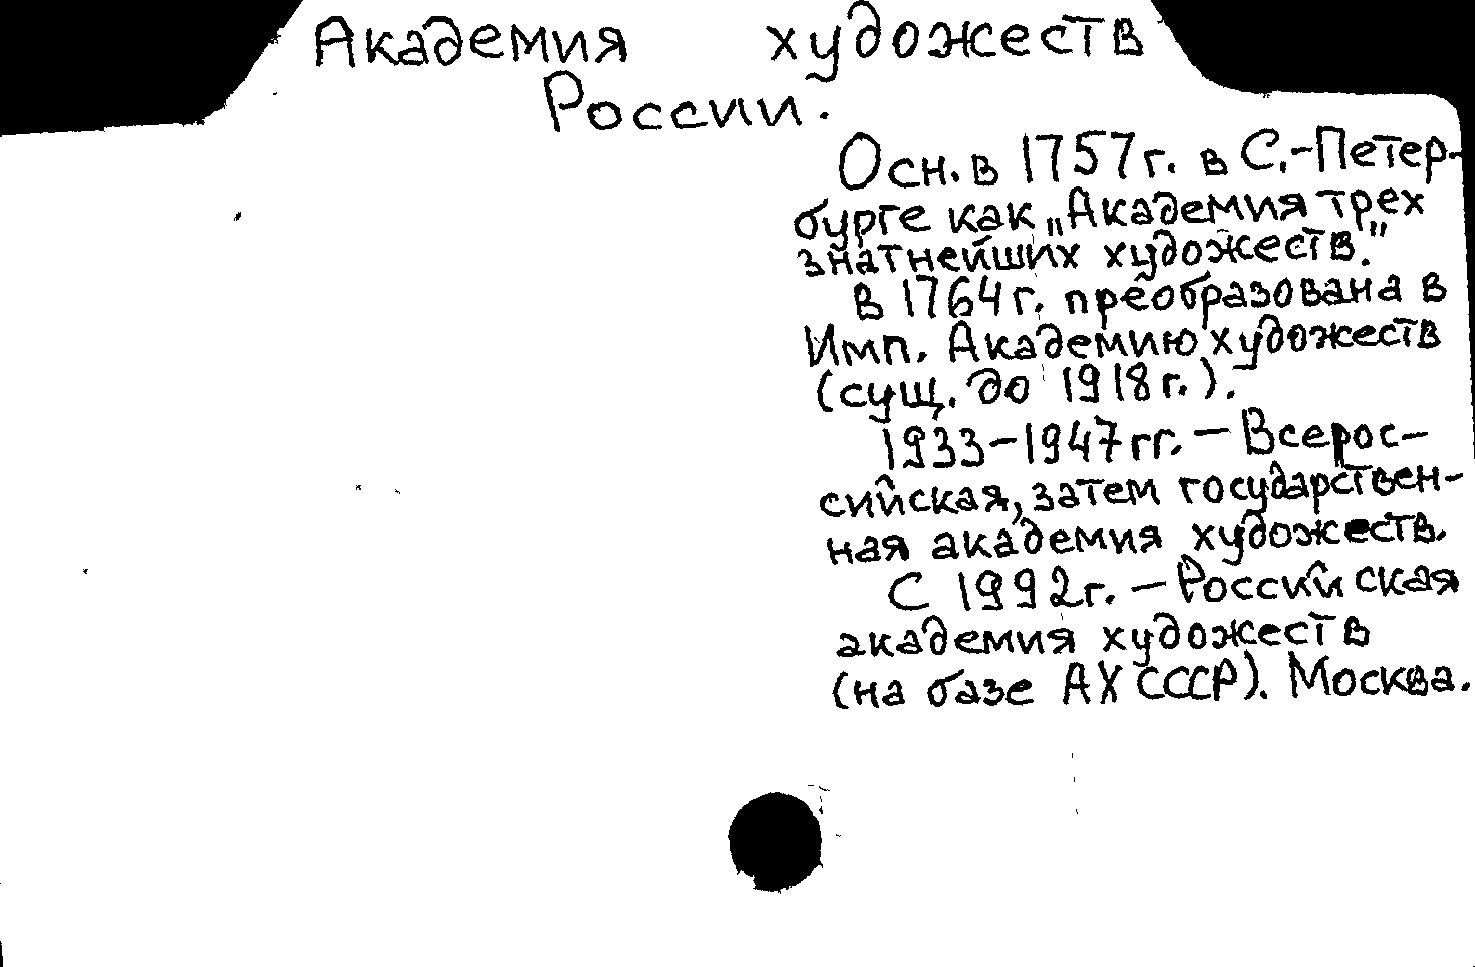 Академия художеств
России.
Осн. в 1757 г. в С.-Петер-
бурге как „Академия трех
знатнейших художеств."
В 1764 г. преобразована в
Имп. Академию художеств
(сущ. до 1918 г.).
1933-1947 гг. - Всерос-
сийская, затем государствен-
ная академия художеств.
С 1992 г. - Российская
академия художеств
(на базе АХ СССР). Москва.